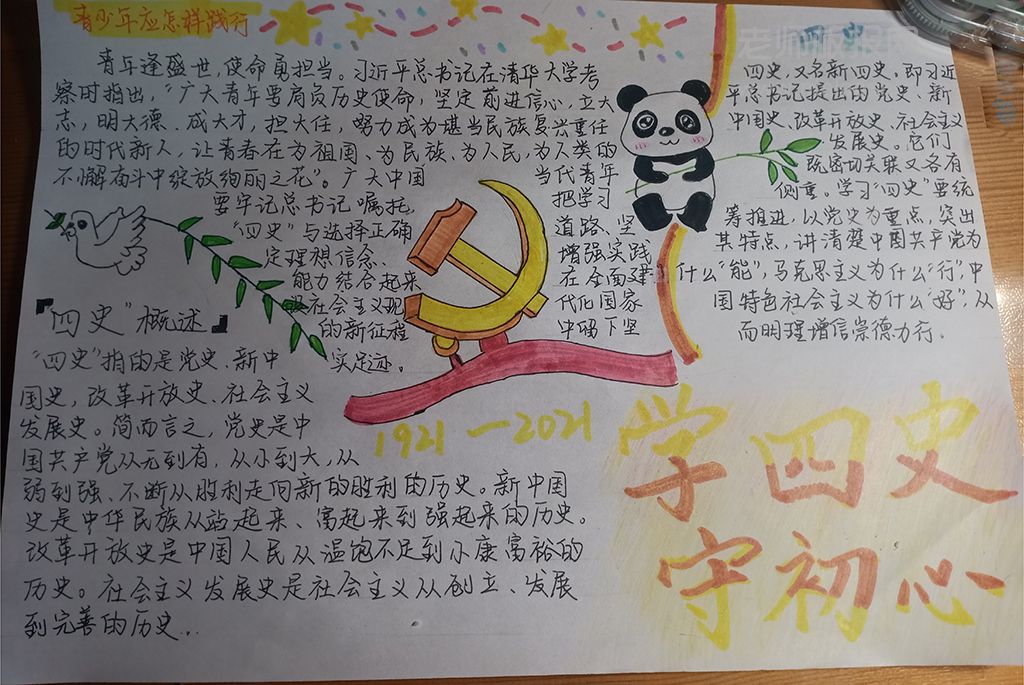 青少年应怎样践行
青年逢盛世，使命勇担当。习近平总书记在清华大学考
察时指出，"广大青年要肩负历史使命，坚定前进信心，立大
志，明大德、成大才，担大任，努力成为堪当民族复兴重任
的时代新人，让青春在为祖国、为民族、为人民，为人类的
不懈奋斗中绽放绚丽之花"。广大中国 当代青年
要牢记总书记嘱托， 把学习
"四史"与选择正确 道路、坚
定理想信念、 增强实践
能力结合起来 在全面建
社会主义现 代化国家
的新征程 中留下坚
实足迹。
四史
四史，又名新四史，即习近
平总书记提出的党史、新
中国史、改革开放史、社会主义
发展史。它们
既密切关联又各有
侧重。学习"四史"要统
筹推进，以党史为重点，突出
其特点，讲清楚中国共产党为
什么"能"，马克思主义为什么"行"，中
国特色社会主义为什么"好"，从
而明理增信崇德力行。
"四史"概述
"四史"指的是党史、新中
国史，改革开放史、社会主义
发展史。简而言之，党史是中
国共产党从无到有，从小到大，从
弱到强、不断从胜利走向新的胜利的历史。新中国
史是中华民族从站起来、富起来到强起来的历史。
改革开放史是中国人民从温饱不足到小康富裕的
历史。社会主义发展史是社会主义从创立、发展
到完善的历史...
1921—2021
学四史
守初心
老师板报网